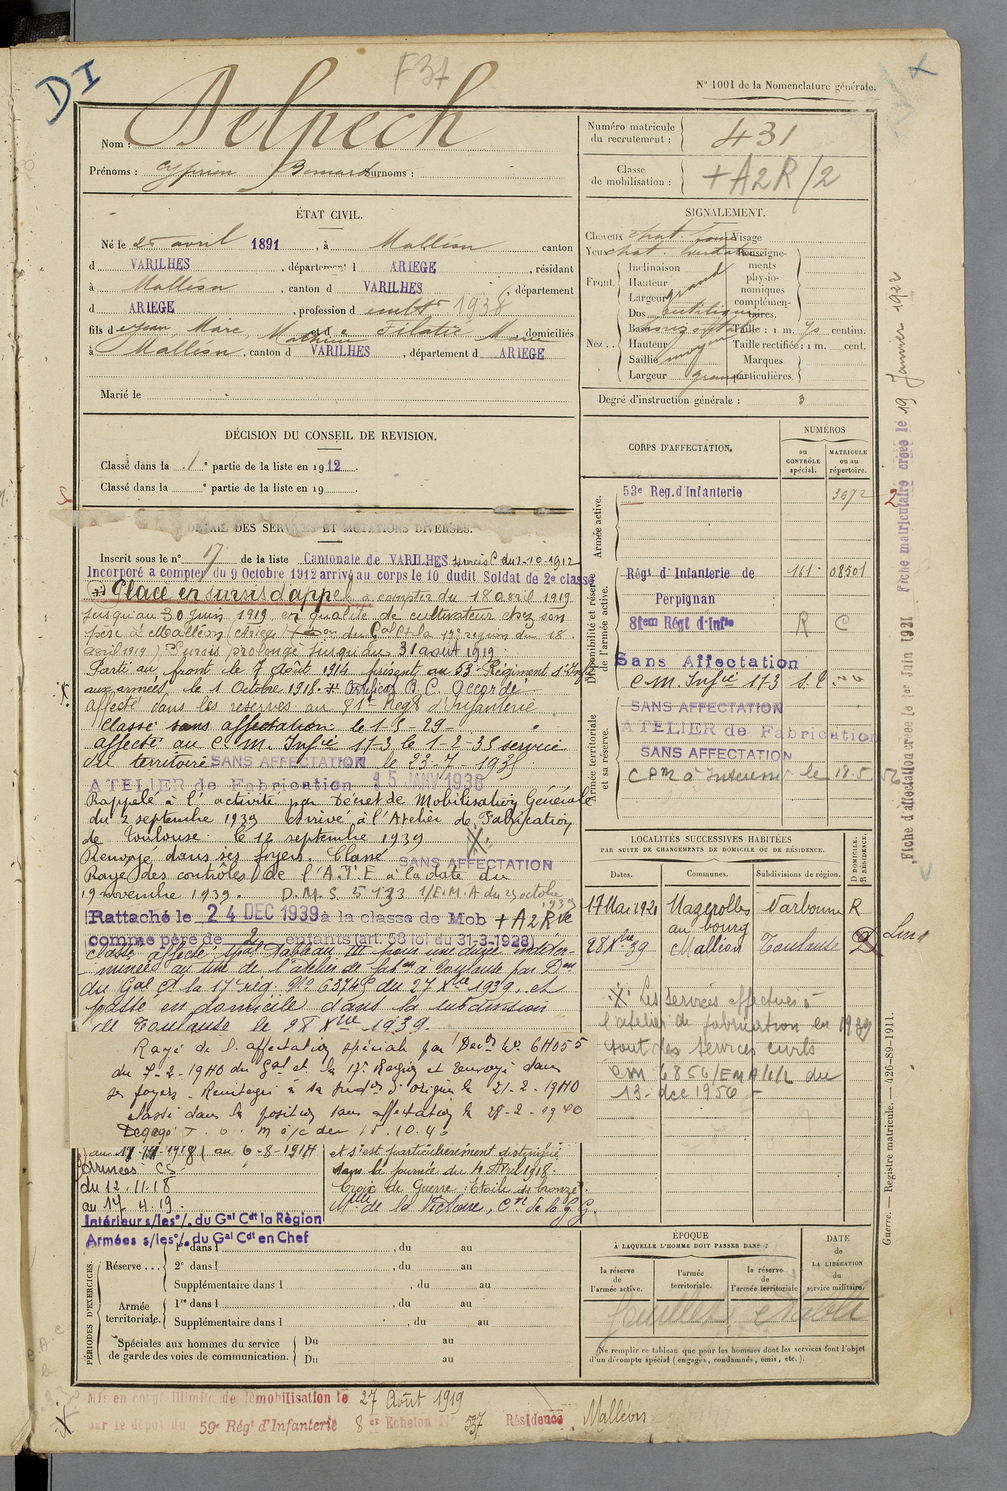 DI
F 37
N° 1001 de la Nomenclature générale.
Nom : Delpech
Prénoms : Cyprien Bernard Surnoms :
Numéro matricule du recrutement : 431
Classe de mobilisation : + A2R/2
ÉTAT CIVIL.
Né le 25 avril 1891, à Malléon canton
d VARILHES, département d ARIEGE, résidant
à Malléon, canton d VARILHES, département
d ARIEGE, profession d cultr 1938
fils d e Jean Marc, Mathieu et d e Filatie Marie domiciliés
à Malléon, canton d VARILHES, département d ARIEGE
Marié le
SIGNALEMENT.
Cheveux chat. foncé Visage
Yeux chat. Renseignements physionomiques complémentaires.
Front. Inclinaison
Hauteur grand
Largeur
Nez . . Dos rectiligne
Base Taille : 1 m. 75 centim.
Hauteur Taille rectifiée : 1 m. cent.
Saillie moyen Marques particulières.
Largeur grand
Degré d'instruction générale : 3
DÉCISION DU CONSEIL DE REVISION.
Classé dans la 1e partie de la liste en 1912.
Classé dans la e partie de la liste en 19 .
DÉTAIL DES SERVICES ET MUTATIONS DIVERSES.
Inscrit sous le n° 17 de la liste Cantonale de VARILHES services C du 1-10-1912
Incorporé a compter du 9 Octobre 1912 arrivé au corps le 10 dudit Soldat de 2e classe
Placé en sursis d'appel à compter du 18 avril 1919
jusqu'au 30 juin 1919 en qualité de cultivateur chez son
père à Malléon (Ariège) du Gal Ct la 17e région du 18
avril 1919) Sursis prolongé jusqu'au 31 août 1919.
Parti au front le 7 Août 1914 présent au 53e Régiment d'Infie
aux armées le 1 Octobre 1918. Certificat B. C. accordé
affecté dans les réserves au 81e Regt d'Infanterie
Classé sans affectation le 1-5-29
affecté au C. M. Infie 173 le 1-2-35 service
du territoire SANS AFFECTATION le 23-7-1935
ATELIER de Fabrication 15 JANV 1938
Rappelé à l'activité par Décret de Mobilisation Générale
du 2 septembre 1939 Arrivé à l'Atelier de Fabrication
de Toulouse le 12 septembre 1939
Renvoyé dans ses foyers. Classé SANS AFFECTATION
Rayé des contrôles de l'A.T.E à la date du
19 novembre 1939. D.M. S 5193 1/E.M.A du 23 octobre 1939
Rattaché le 24 DEC 1939 à la classe de Mob + A2R
comme père de 2 enfants (art. 58 loi du 31-3-1928)
Classé affecté spal Tableau III pour une durée indéter-
minée au titre de l'atelier de fabon à Toulouse par Don
du Gal Ct la 17e rég. N° 63745 du 27 Xbre 1939, et
passé en domicile dans la subdivision
de Toulouse le 28 Xbre 1939.
Rayé de l'affectation spéciale par Décon N° 6H055
du 7-2-1940 du Gal Ct la 17e Région et renvoyé dans
ses foyers. Réintégré à sa subdon d'origine le 21-2-1940
classé dans la position sans affectation le 28-2-1940
Dégagé T. O. M à/c du 15.10.40
au 6-8-1914
armées CS
du 12.11.18
au 17 4.19.
Intérieur s/les o/. du Gal Cdt la Région
Armées s/les o/. du Gal Cdt en Chef
et s'est particulièrement distingué
dans la journée du 4 Avril 1918.
Croix de Guerre Etoile de bronze
Mlle de la Victoire,
CORPS D'AFFECTATION.
NUMÉROS
au CONTRÔLE spécial.
MATRICULE ou au répertoire.
Armée active.
53e Reg. d'Infanterie 3672
Disponibilité et réserve de l'armée active.
Régt d'Infanterie de Perpignan 161 08501
81em Régt d'Infie R C
Sans Affectation
C. M. Infie 173 S. T.
SANS AFFECTATION
Armée territoriale et sa réserve.
ATELIER de Fabrication
SANS AFFECTATION
le 18.5
LOCALITÉS SUCCESSIVES HABITÉES
PAR SUITE DE CHANGEMENTS DE DOMICILE OU DE RÉSIDENCE.
Dates. Communes. Subdivisions de région. D DOMICILE. R RÉSIDENCE.
17 Mai 1921 Mazerolles au bourg Narbonne R
28 Xbre 39 Malléon Toulouse D
Les services effectués à
l'atelier de fabrication en 1939
sont des services civils
CM 6856/EMA/1/L du
13-dec 1956
ÉPOQUE
À LAQUELLE L'HOMME DOIT PASSER DANS :
la réserve de l'armée active.
l'armée territoriale.
la réserve de l'armée territoriale
DATE de LA LIBÉRATION du service militaire.
Ne remplir ce tableau que pour les hommes dont les services font l'objet
d'un décompte spécial (engagés, condamnés, omis, etc.).
PÉRIODES D'EXERCICES.
Réserve . . .
1re dans l , du au
2e dans l , du au
Supplémentaire dans l , du au
Armée territoriale.
1re dans l , du au
Supplémentaire dans l , du au
Spéciales aux hommes du service
de garde des voies de communication.
Du au
Du au
Mis en congé illimité de démobilisation le 27 Août 1919
par le dépôt du 59e Régt d'Infanterie 8er Echelon N° 37 Résidence Malléon
Fiche d'affectation créée le 1er Juin 1921 Fiche matriculaire créée le 19 Janvier 1922
Guerre. — Registre matricule. — 426-89-1911.